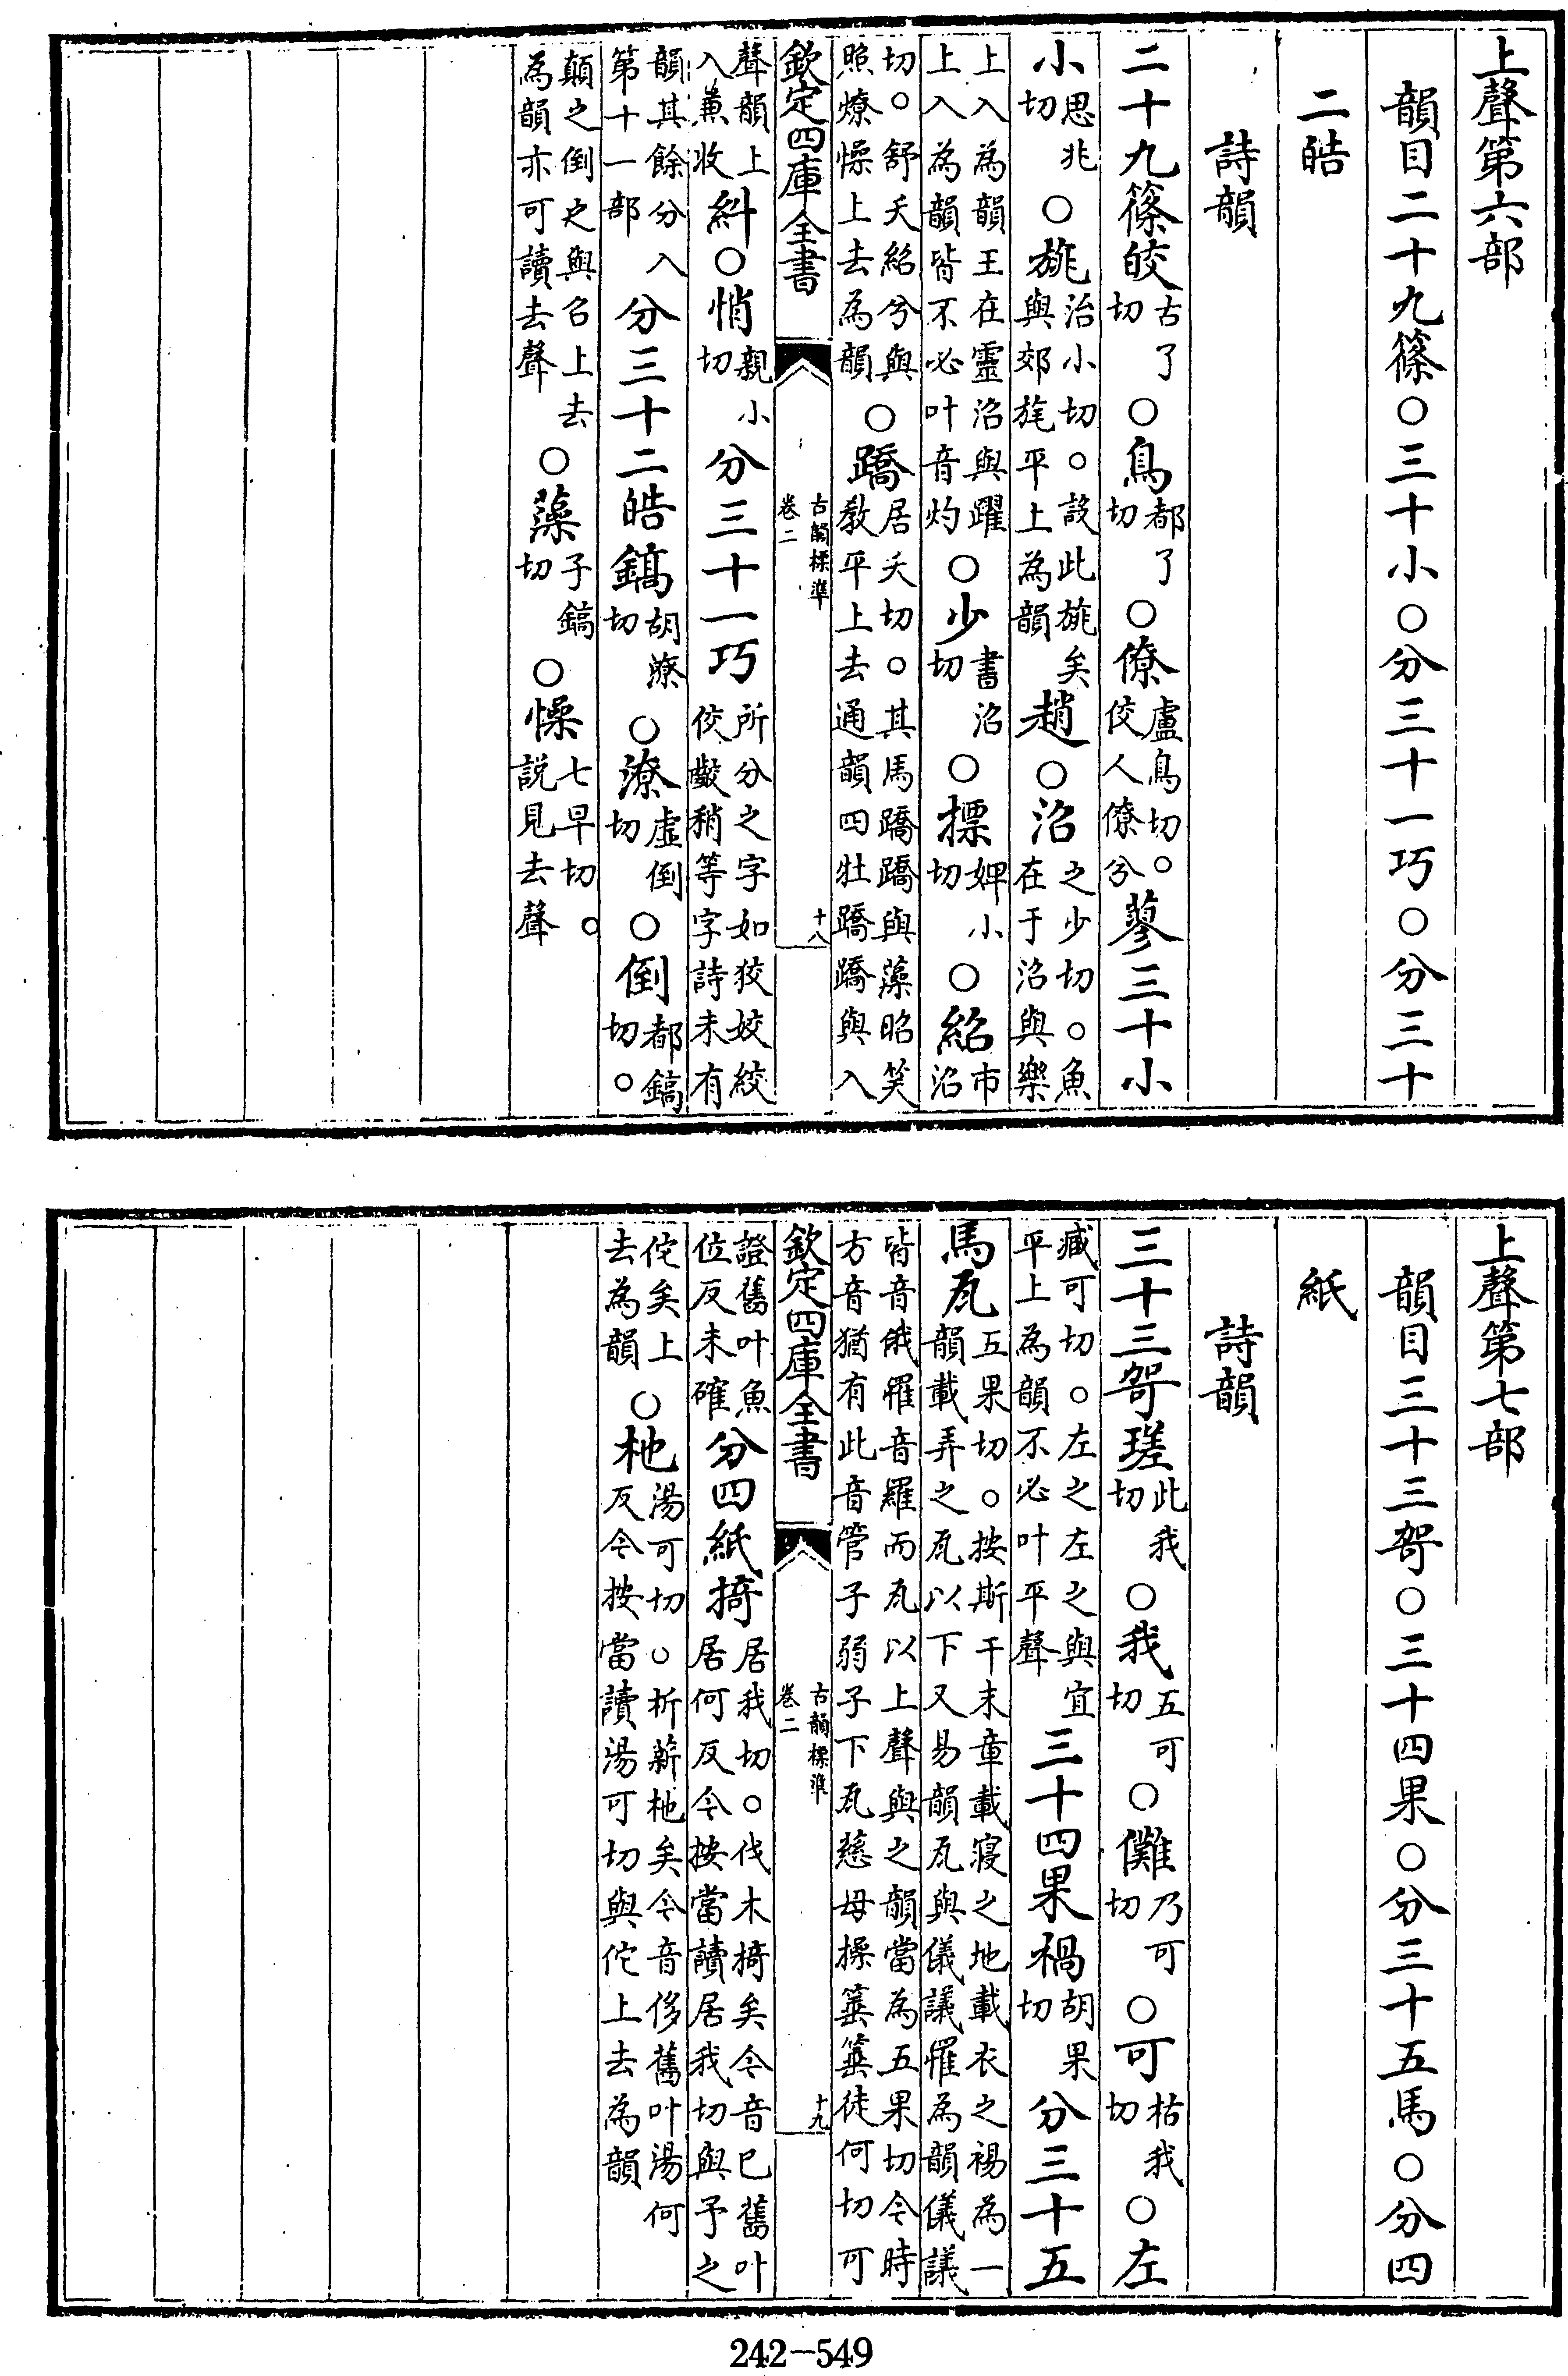 上聲第六部
韻目二十九篠○三十小○分三十一巧○分三十
二皓
詩韻
二十九篠皎古了切○鳥都了切○僚盧鳥切。佼人僚兮蓼三十小
小思兆切○旐治小切。設此旐矣與郊旄平上為韻趙○沼之少切。魚在于沼與樂
上入為韻王在靈沼與躍上入為韻皆不必叶音灼○少書沼切○摽婢小切○紹市沼
切。舒夭紹兮與照燎懆上去為韻○蹻居夭切。其馬蹻蹻與藻昭笑教平上去通韻四牡蹻蹻與入
欽定四庫全書 古韻標準 卷二 十八
聲韻上入兼收糾○悄親小切分三十一巧所分之字如狡姣絞佼齩稍等字詩未有
韻其餘分入第十一部分三十二皓鎬胡潦切○潦虛倒切○倒都鎬切。
顛之倒之與召上去為韻亦可讀去聲○藻子鎬切○懆七早切。說見去聲
上聲第七部
韻目三十三哿○三十四果○分三十五馬○分四
紙
詩韻
三十三哿瑳此我切○我五可切○儺乃可切○可枯我切○左
臧可切。左之左之與宜平上為韻不必叶平聲三十四果禍胡果切分三十五
馬瓦五果切。按斯干末章載寢之地載衣之裼為一韻載弄之瓦以下又易韻瓦與儀議罹為韻儀議
皆音俄罹音羅而瓦以上聲與之韻當為五果切今時方音猶有此音管子弱子下瓦慈母操箠箠徒何切可
欽定四庫全書 古韻標準 卷二 十九
證舊叶魚位反未確分四紙掎居我切。伐木掎矣今音已舊叶居何反今按當讀居我切與予之
佗矣上去為韻○杝湯可切。析薪杝矣今音侈舊叶湯何反今按當讀湯可切與佗上去為韻
242-549